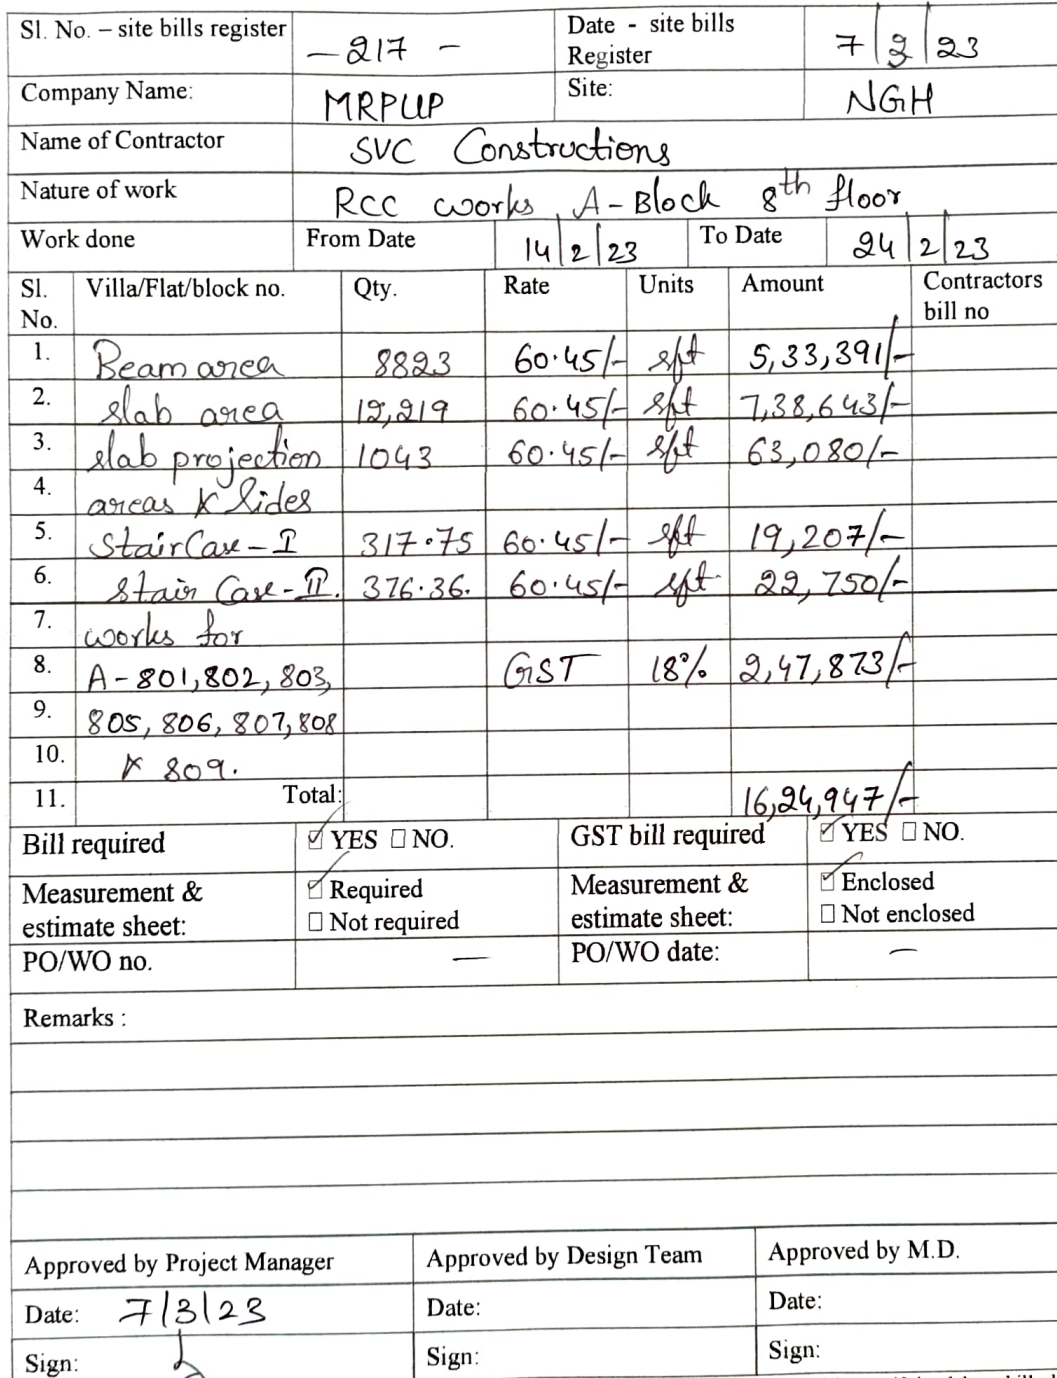 Sl. No. – site bills register — 217 — Date - site bills Register 7/3/23
Company Name: MRPLLP Site: NGH
Name of Contractor SVC Constructions
Nature of work RCC works, A-Block 8th floor
Work done From Date 14/2/23 To Date 24/2/23
Sl. No. Villa/Flat/block no. Qty. Rate Units Amount Contractors bill no
1. Beam area 8823 60.45/- sft 5,33,391/-
2. slab area 12,219 60.45/- sft 7,38,643/-
3. slab projection 1043 60.45/- sft 63,080/-
4. areas & sides
5. StairCase-I 317.75 60.45/- sft 19,207/-
6. Stair Case-II. 376.36. 60.45/- sft 22,750/-
7. works for
8. A-801,802,803, GST 18% 2,47,873/-
9. 805, 806, 807, 808
10. & 809.
11. Total: 16,24,947/-
Bill required ☑ YES ☐ NO. GST bill required ☑ YES ☐ NO.
Measurement & estimate sheet: ☑ Required ☐ Not required Measurement & estimate sheet: ☑ Enclosed ☐ Not enclosed
PO/WO no. — PO/WO date: —
Remarks :
Approved by Project Manager Approved by Design Team Approved by M.D.
Date: 7/3/23 Date: Date:
Sign: Sign: Sign: